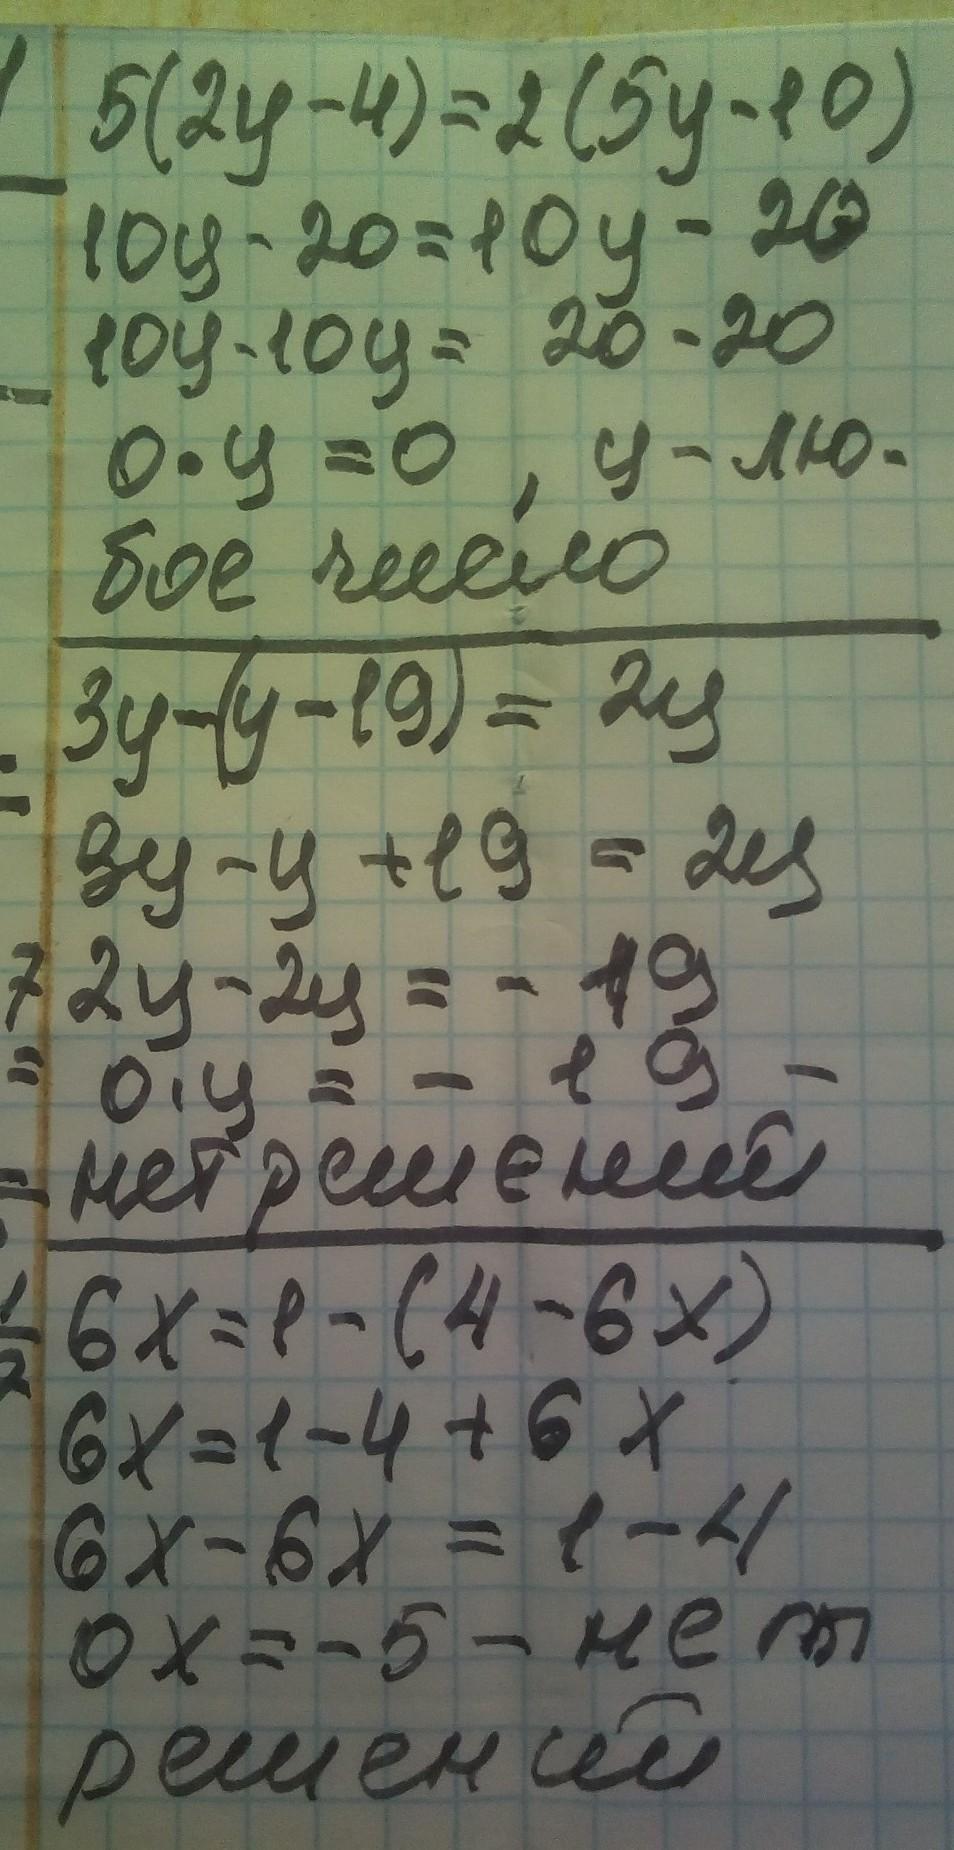 5(2y-4)=2(5y-10)
10y-20=10y-20
10y-10y= 20-20
0·y=0, y-лю-
бое число
3y-(y-19)=2y
3y-y+19=2y
7 2y-2y=-19
= 0·y=-19-
= нет решений
1/2 6x=1-(4-6x)
6x=1-4+6x
6x-6x=1-4
0x=-5-нет
решений